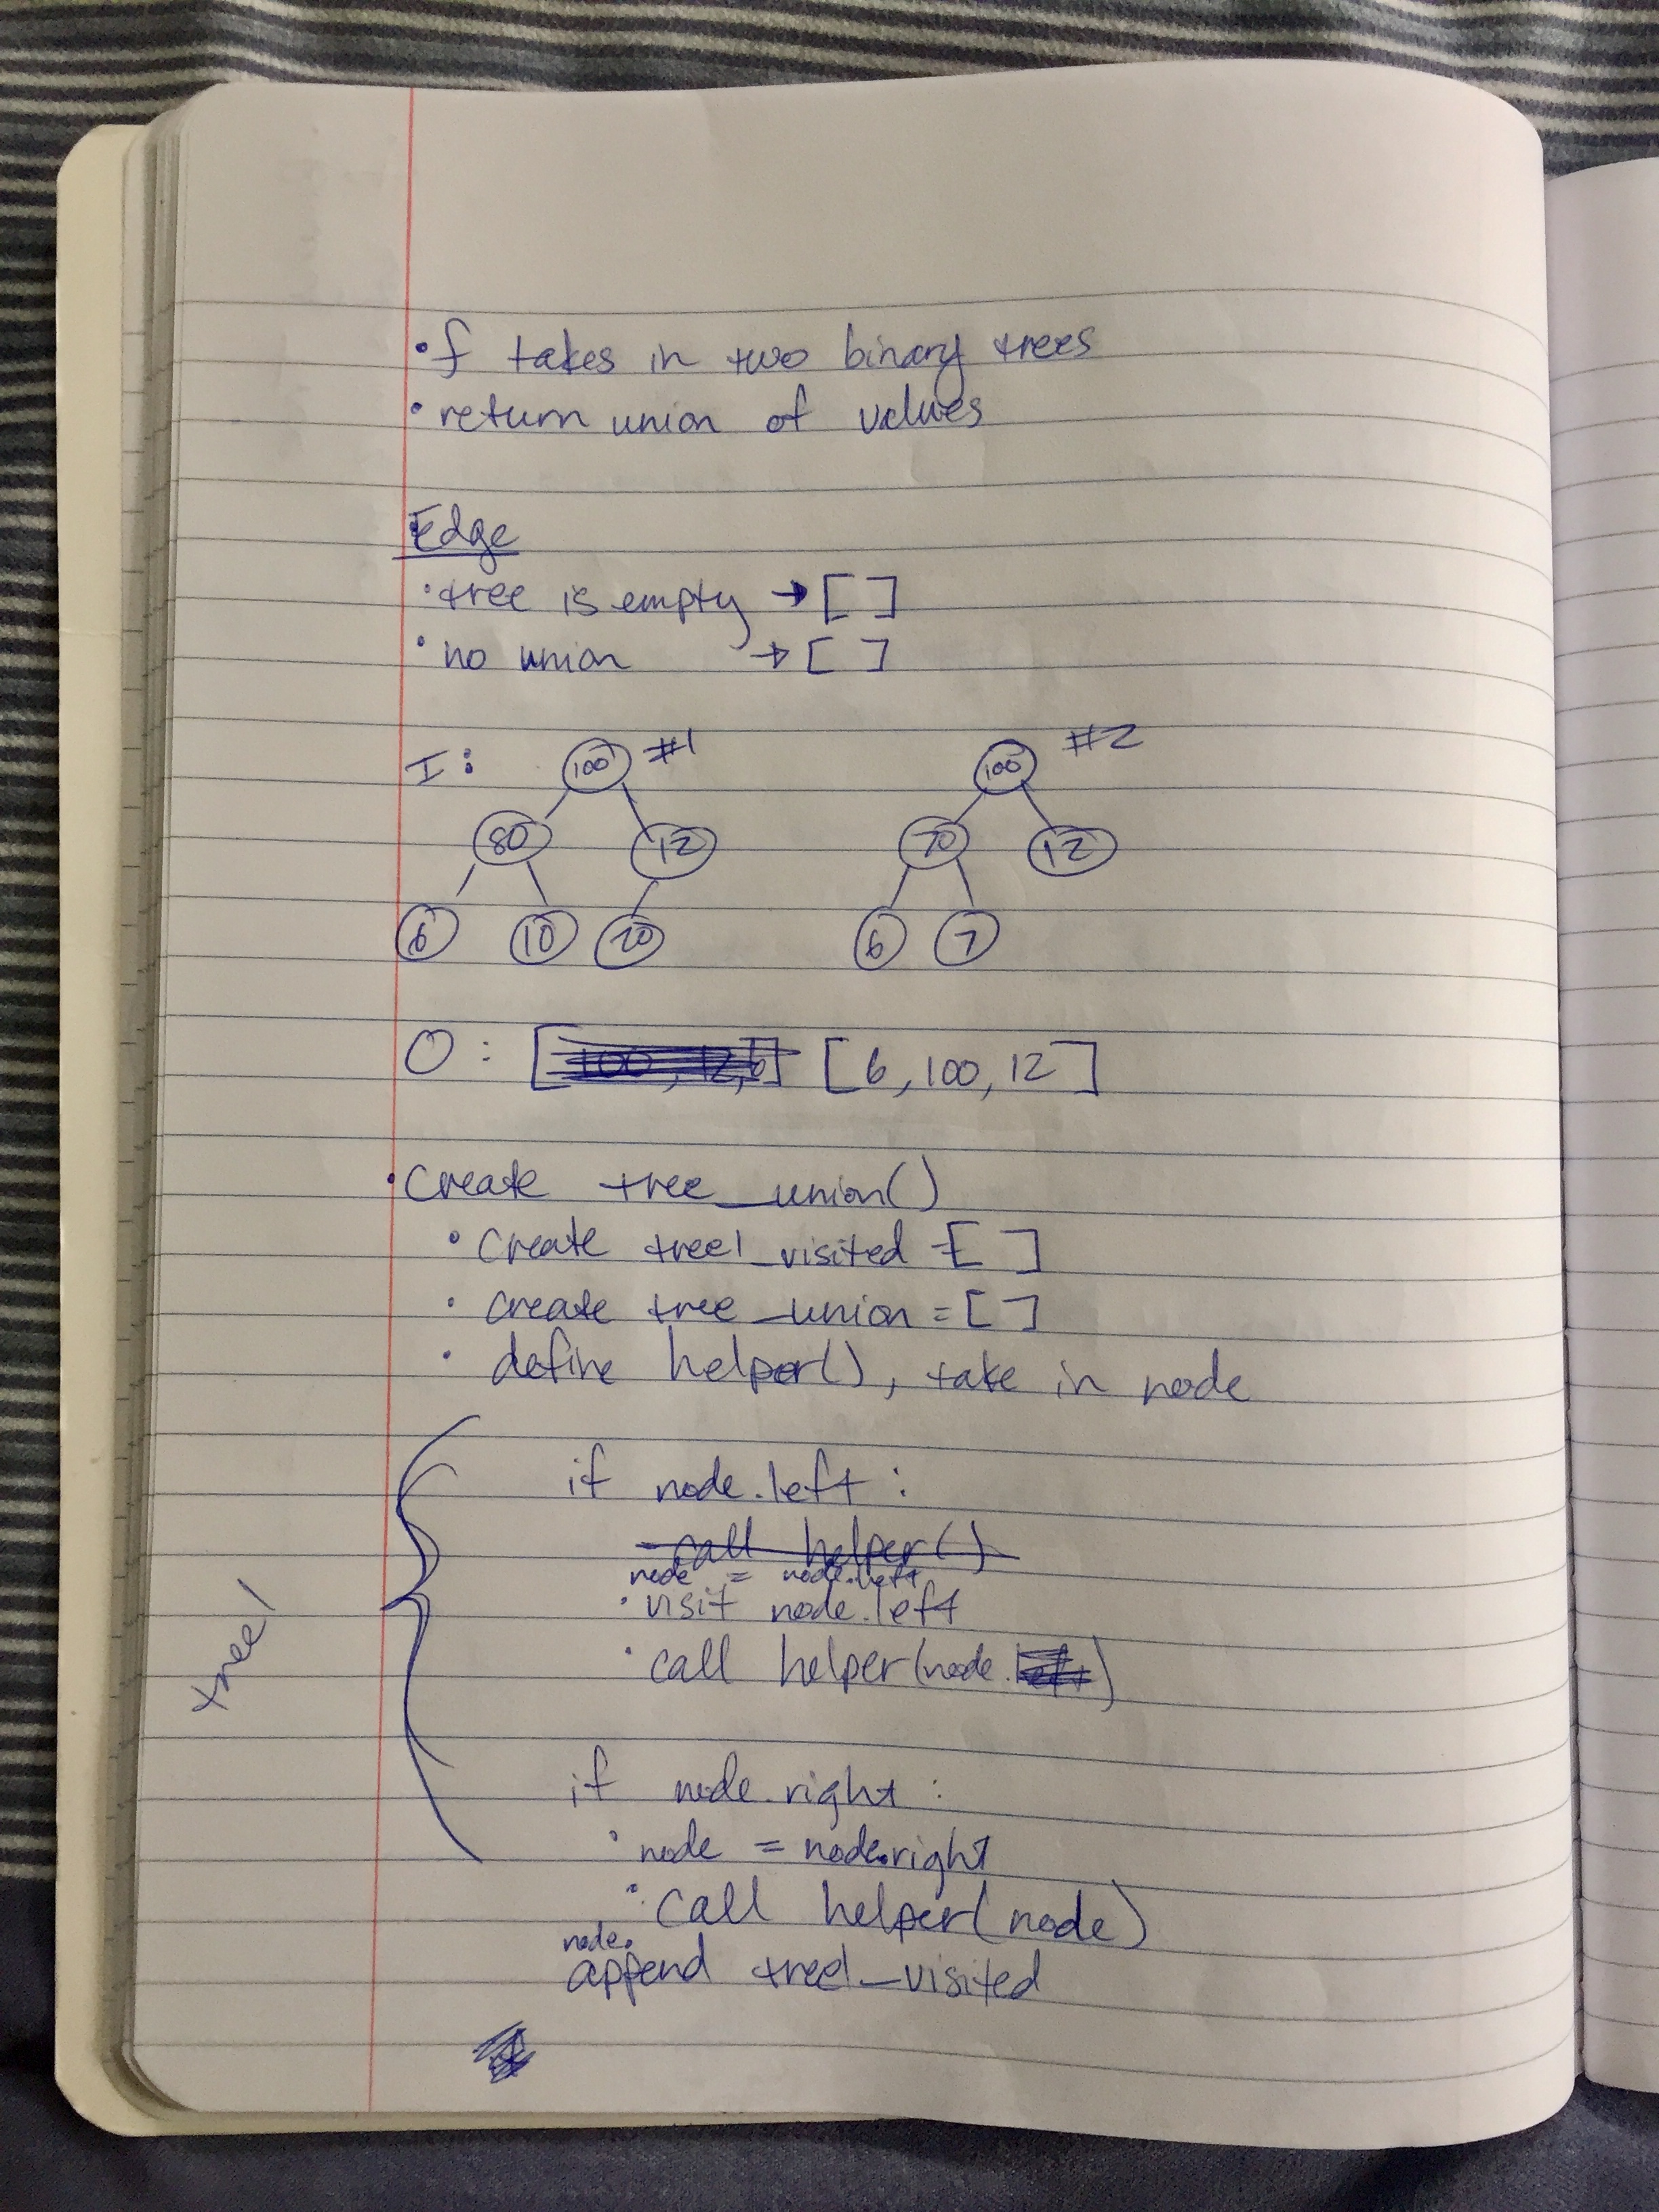 • f takes in two binary trees
• return union of values
Edge
• tree is empty → [ ]
• no union → [ ]
I: 100 #1 100 #2
80 12 70 12
6 10 20 6 7
O: [100, 12, 6] [6, 100, 12]
• Create tree_union()
• Create tree1_visited = [ ]
• create tree_union = [ ]
• define helper(), take in node
if node.left:
call helper()
node = node.left
• visit node.left
• call helper(node.left)
tree1
if node.right:
• node = node.right
• call helper(node)
node.
append tree1_visited